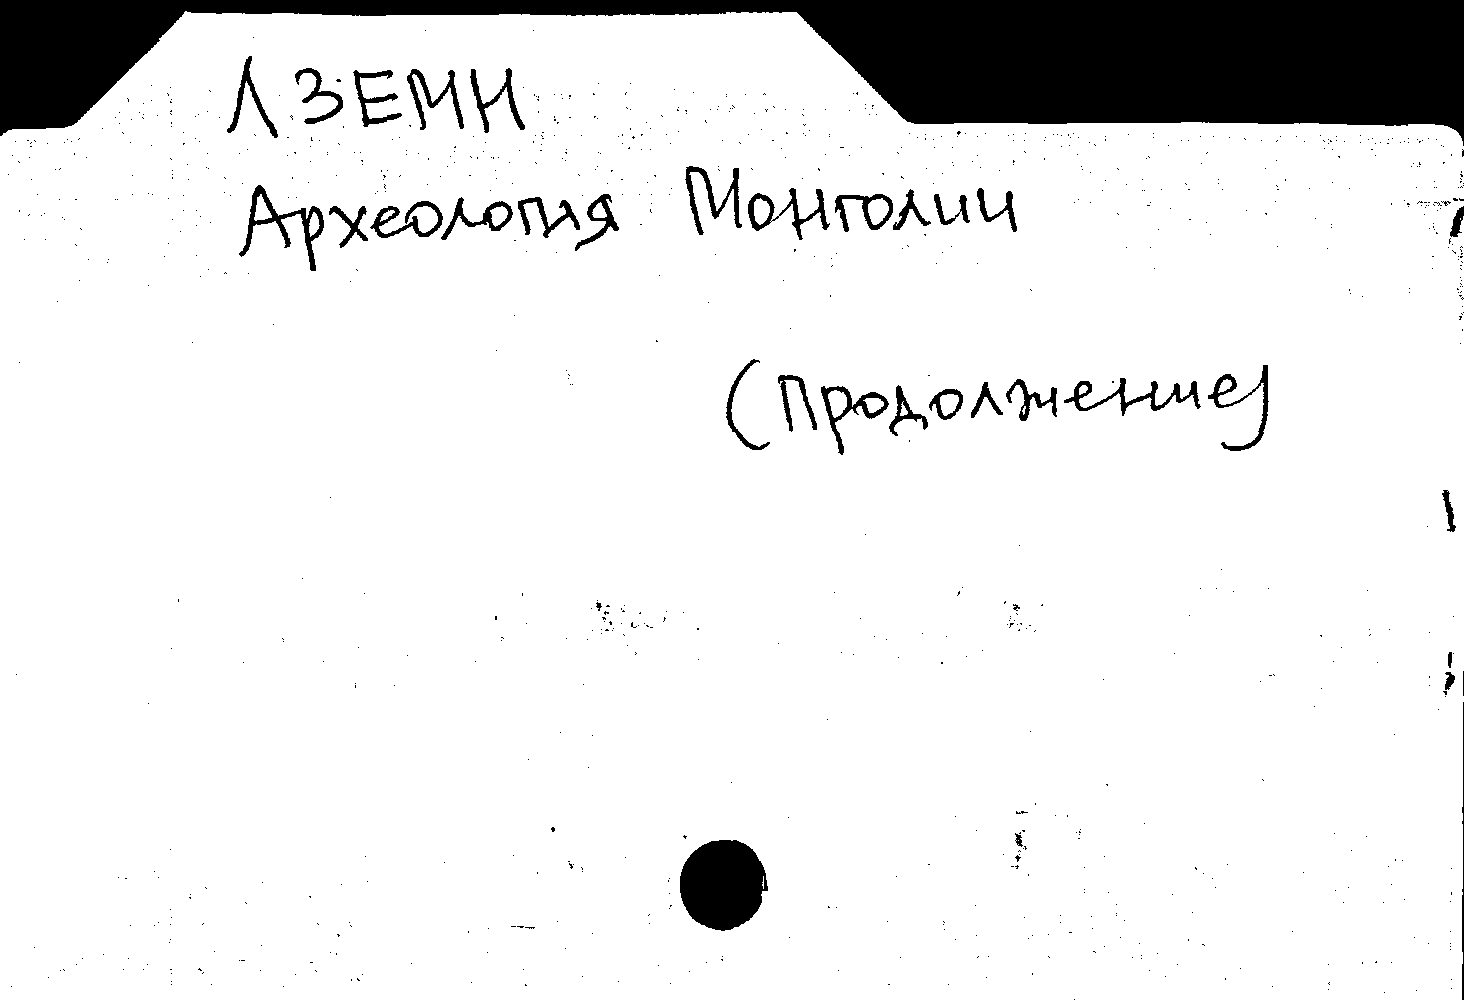 Л3ЕМН
Археология Монголии
(Продолжение)